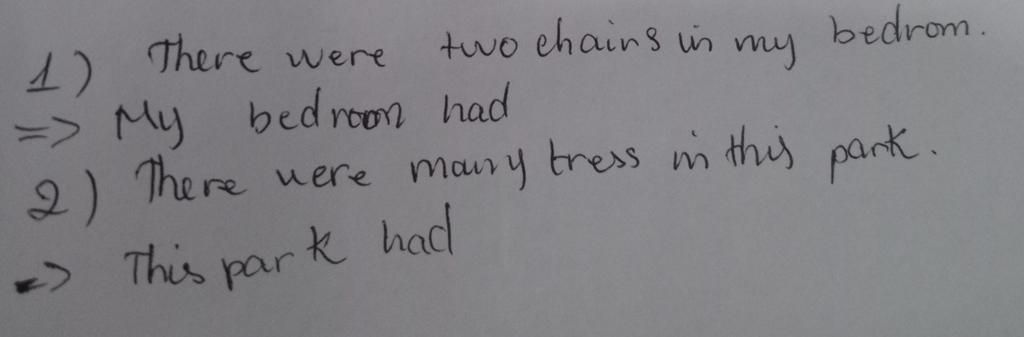 1) There were two chairs in my bedrom.
=> My bedroom had
2) There were many tress in this park.
=> This park had